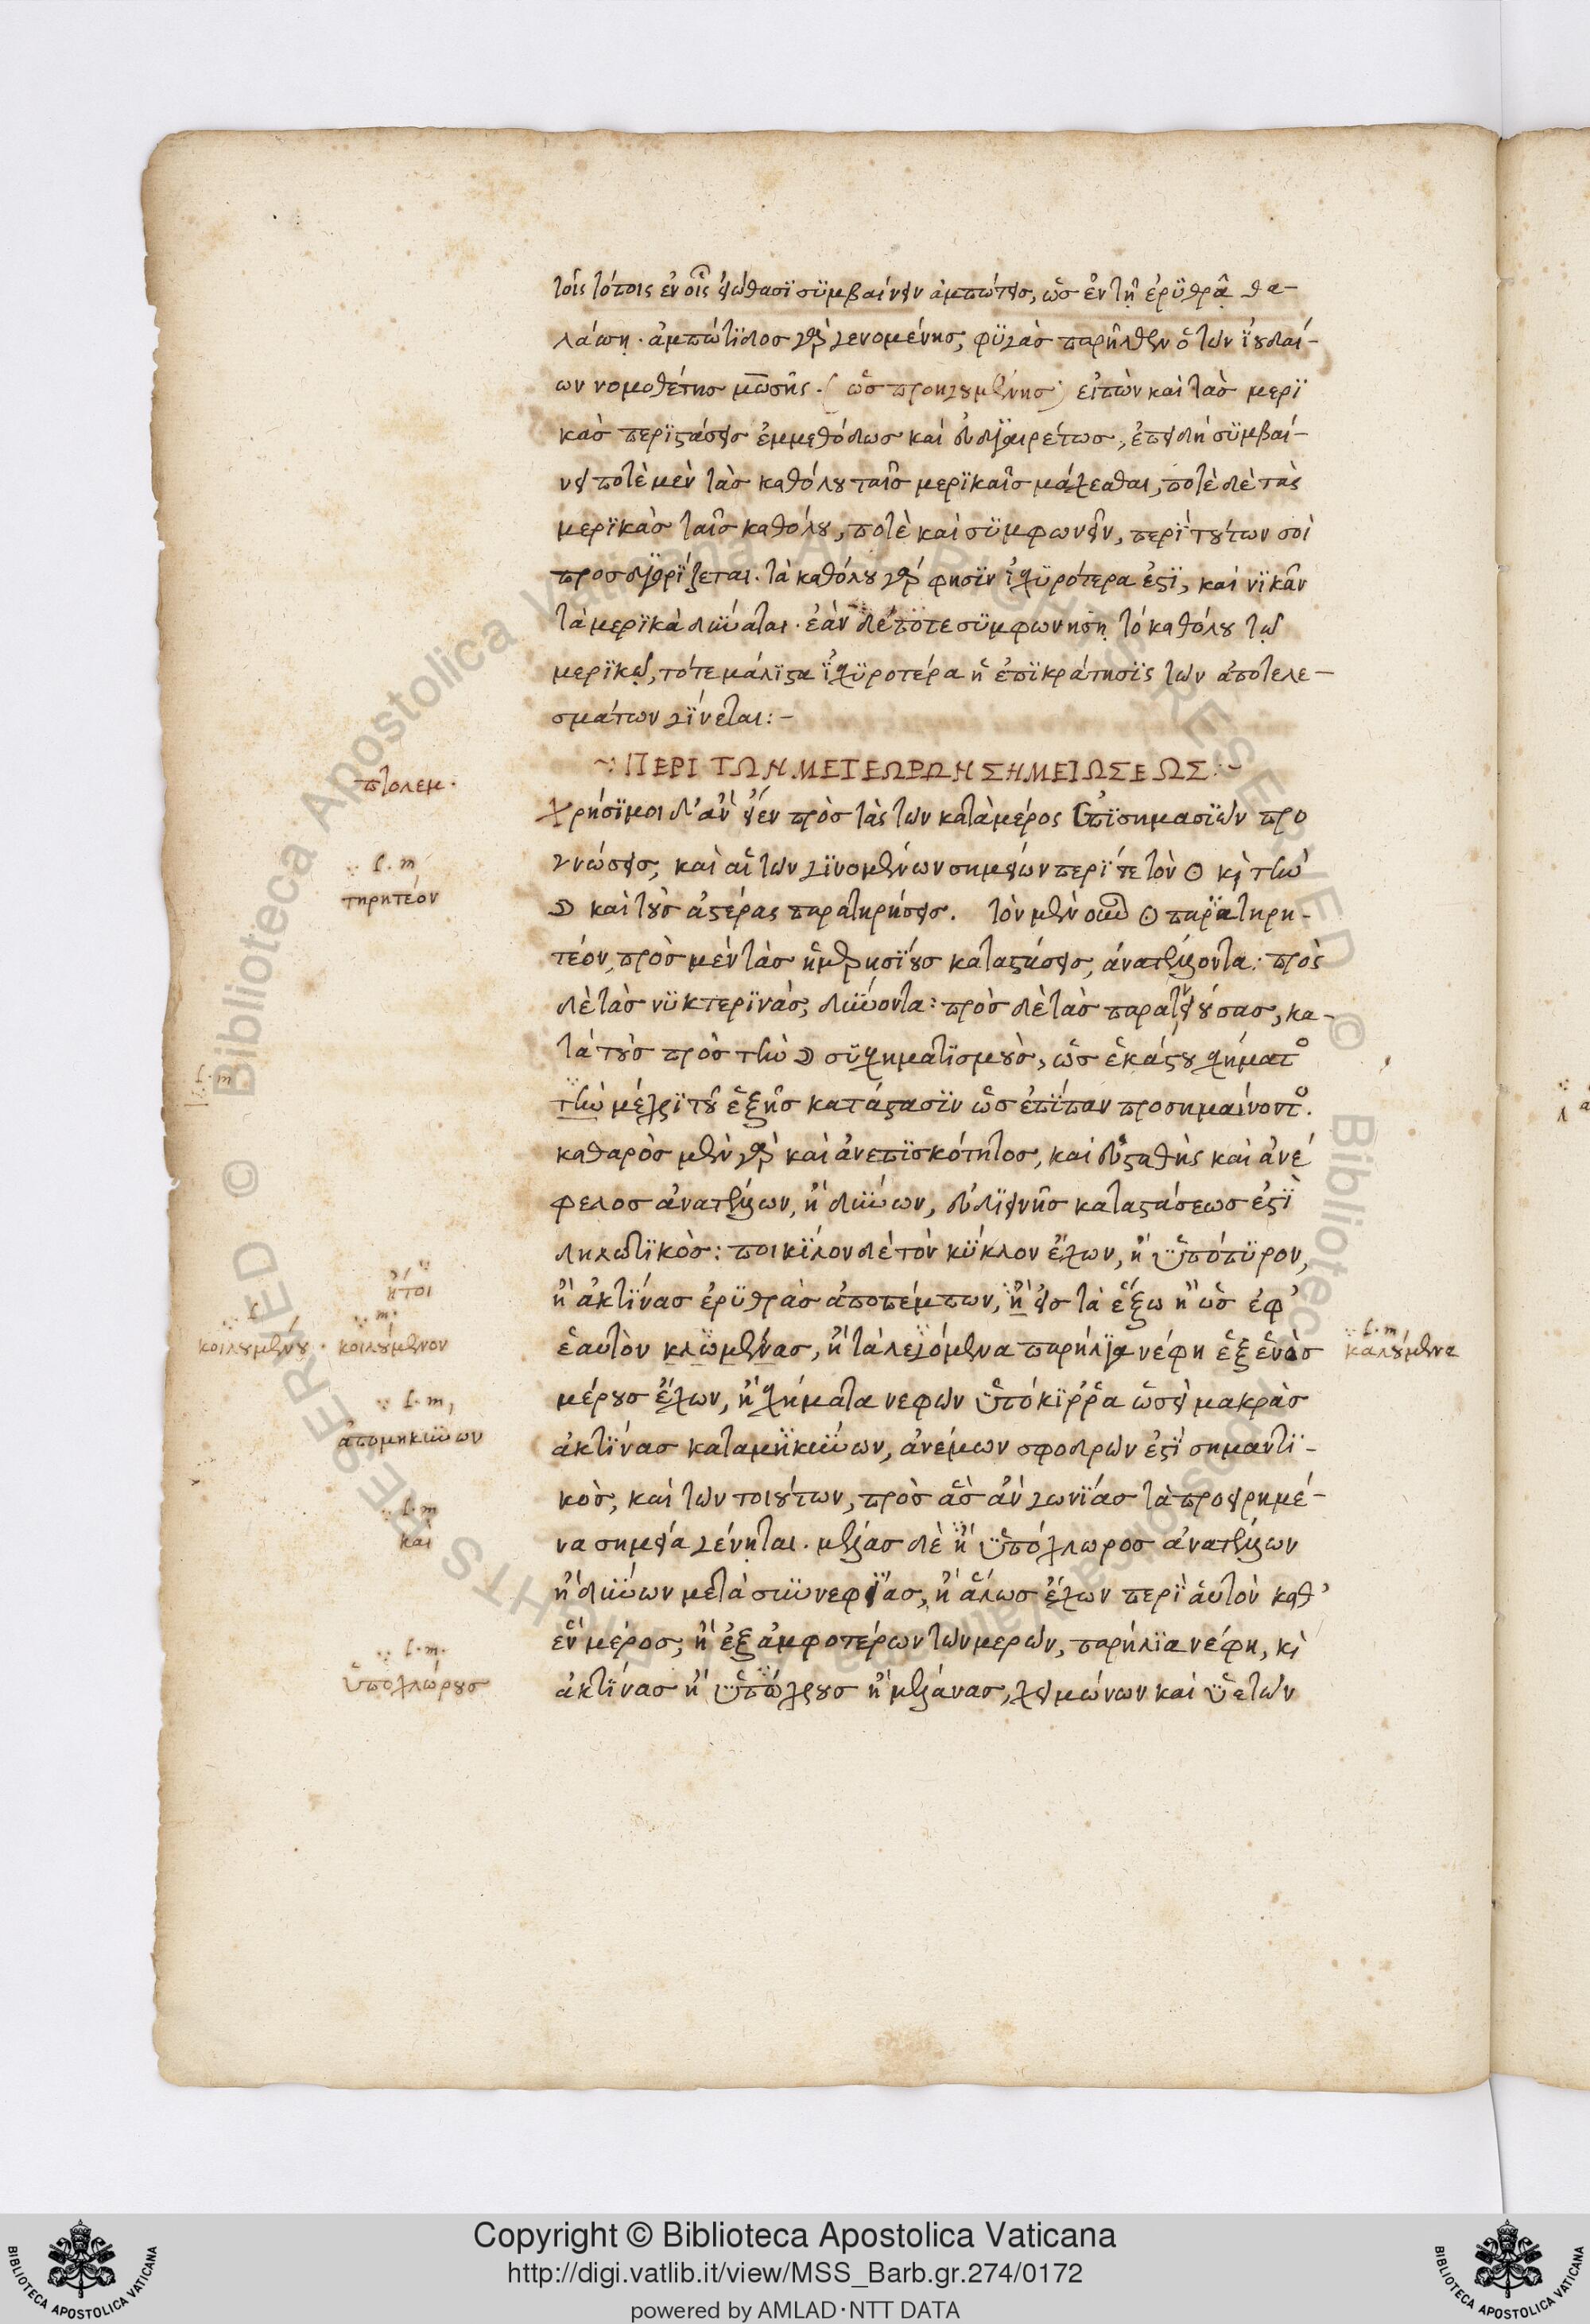 τοῖς τόποις ἐν οἷς εἰώθασι συμβαίνειν ἀμπώτεις, ὡς ἐν τῇ ἐρυθρᾷ θα-
λάσσῃ. ἀμπώτιδος γὰρ γενομένης, φυγὰς παρῆλθεν ὁ τῶν ἰουδαί-
ων νομοθέτης μωσῆς. (ὡς προηγουμένης) εἰπὼν καὶ τὰς μερι
κὰς περιστάσεις ἐμμεθόδως καὶ εὐδιαιρέτως, ἐπειδὴ συμβαί-
νει ποτὲ μὲν τὰς καθόλου ταῖς μερικαῖς μάχεσθαι, ποτὲ δὲ τὰς
μερικὰς ταῖς καθόλου, ποτὲ καὶ συμφωνεῖν, περὶ τούτων σοὶ
προσδιορίζεται. τὰ καθόλου γάρ φησιν ἰσχυρότερα ἐστὶ, καὶ νικᾶν
τὰ μερικὰ δύναται. ἐὰν δέ ποτε συμφωνήσῃ τὸ καθόλου τῷ
μερικῷ, τότε μάλιστα ἰσχυροτέρα ἡ ἐπικράτησις τῶν ἀποτελε-
σμάτων γίνεται:-
~: ΠΕΡΙ ΤΩΝ ΜΕΤΕΩΡΩΝ ΣΗΜΕΙΩΣΕΩΣ :~
πτολεμ.
Χρήσιμοι δ' ἂν εἶεν πρὸς τὰς τῶν κατὰ μέρος ἐπισημασιῶν προ
γνώσεις, καὶ αἱ τῶν γινομένων σημείων περί τε τὸν ☉ κ τὴν
ſ. m
τηρητέον
☽ καὶ τοὺς ἀστέρας παρατηρήσεις. τὸν μὲν οὖν ☉ παρατηρη-
τέον, πρὸς μὲν τὰς ἡμερησίους καταστάσεις, ἀνατέλλοντα: πρὸς
δὲ τὰς νυκτερινὰς, δύνοντα: πρὸς δὲ τὰς παρατεινούσας, κα-
τὰ τοὺς πρὸς τὴν ☽ συσχηματισμοὺς, ὡς ἑκάστου σχήματο
ſ. m
τὴν μέχρι τοῦ ἑξῆς κατάστασιν ὡς ἐπίπαν προσημαίνοντο.
καθαρὸς μὲν γὰρ καὶ ἀνεπισκότητος, καὶ εὐσταθὴς καὶ ἀνέ
φελος ἀνατέλλων, ἢ δύνων, εὐδιεινῆς καταστάσεως ἐστὶ
δηλωτικὸς: ποικίλον δὲ τὸν κύκλον ἔχων, ἢ ὑπόπυρον,
ἤτοι
ἢ ἀκτῖνας ἐρυθρὰς ἀποπέμπων, ἢ εἰς τὰ ἔξω ἢ ὡς ἐφ'
ſ m.
κοιλουμένου. κοιλούμενον
ἑαυτὸν κλωμένας, ἢ τὰ λεγόμενα παρήλια νέφη ἐξ ἑνὸς
ſ. m
καλούμενα
μέρους ἔχων, ἢ σχήματα νεφῶν ὑπόκιρρα ὡσεὶ μακρὰς
ſ. m,
ἀπομηκύνων
ἀκτῖνας καταμηκύνων, ἀνέμων σφοδρῶν ἐστὶ σημαντι-
κὸς, καὶ τῶν τοιούτων, πρὸς ἃς ἂν γωνίας τὰ προειρημέ-
ſ. m
καὶ
να σημεῖα γένηται. μέλας δὲ ἢ ὑπόχλωρος ἀνατέλλων
ἢ δύνων μετὰ συννεφίας, ἢ ἅλως ἔχων περὶ αὐτὸν καθ'
ἓν μέρος, ἢ ἐξ ἀμφοτέρων τῶν μερῶν, παρήλια νέφη, κ
ſ. m.
ὑποχλώρους
ἀκτῖνας ἢ ὑπώχρους ἢ μελάνας, χειμώνων καὶ ὑετῶν
Copyright © Biblioteca Apostolica Vaticana
http://digi.vatlib.it/view/MSS_Barb.gr.274/0172
powered by AMLAD·NTT DATA
BIBLIOTECA APOSTOLICA VATICANA
BIBLIOTECA APOSTOLICA VATICANA